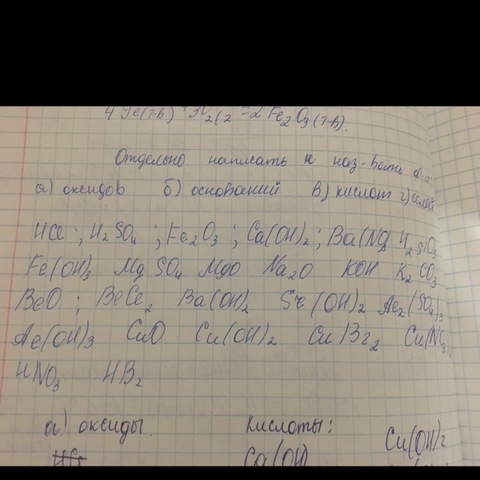 4 Fe(т-в) + 3O2(2 = 2 Fe2O3(т-в).
Отдельно написать и наз-вать ф-л:
а) оксидов б) оснований в) кислот г) солей
HCl ; H2SO4 ; Fe2O3 ; Ca(OH)2 ; Ba(NO3 H2SiO3
Fe(OH)3 Mg SO4 MgO Na2O KOH K2CO3
BeO ; BeCl2 Ba(OH)2 Sr(OH)2 Al2(SO4)3
Al(OH)3 CuO Cu(OH)2 Cu Br2 Cu(NO3)
HNO3 HB2
а) оксиды. кислоты: Cu(OH)2
HCl Ca(OH)